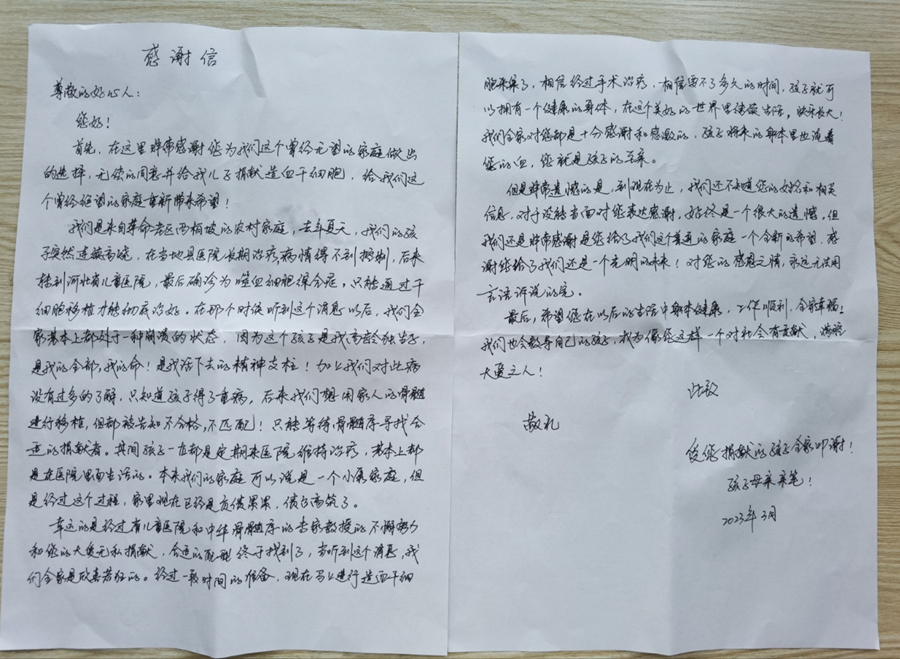 感谢信
尊敬的好心人：
您好！
首先，在这里非常感谢您为我们这个曾经无望的家庭做出
的选择，无偿的同意并给我儿子捐献造血干细胞，给我们这
个曾经绝望的家庭重新带来希望！
我们是来自革命老区西柏坡的农村家庭，去年夏天，我们的孩
子突然连续高烧，在当地县医院长期治疗病情得不到控制，后来
转到河北省儿童医院，最后确诊为噬血细胞综合症。只能通过干
细胞移植才能彻底治好。在那个时候听到这个消息以后，我们全
家基本上都处于一种崩溃的状态，因为这个孩子是我高龄独生子，
是我的全部，我的命！是我活下去的精神支柱！加上我们对此病
没有过多的了解，只知道孩子得了重病，后来我们想用家人的骨髓
进行移植，但都被告知不合格，不匹配！只能等待骨髓库寻找合
适的捐献者。其间孩子一直都是定期来医院维持治疗，基本上都
是在医院里面生活的。本来我们的家庭可以说是一个小康家庭，但
是经过这个过程，家里现在已经是负债累累，债台高筑了。
幸运的是经过省儿童医院和中华骨髓库的专家教授的不懈努力
和您的大爱无私捐献，合适的配型终于找到了，当听到这个消息，我
们全家是欣喜若狂的。经过一段时间的准备，现在马上进行造血干细
胞采集了，相信经过手术治疗，相信要不了多久的时间，孩子就可
以拥有一个健康的身体，在这个美好的世界里继续生活，快乐长大！
我们全家对您都是十分感谢和感激的，孩子将来的身体里也流着
您的血，您就是孩子的至亲。
但是非常遗憾的是，到现在为止，我们还不知道您的姓名和相关
信息，对于没能当面对您表达感谢，始终是一个很大的遗憾，但
我们还是非常感谢是您给了我们这个普通的家庭一个全新的希望，感
谢您给了我们还是一个光明的未来！对您的感恩之情，永远无法用
言语诉说的完。
最后，希望您在以后的生活中身体健康，工作顺利，全家幸福！
我们也会教导自己的孩子，成为像您这样一个对社会有贡献，满怀
大爱之人！
此致
敬礼
受您捐献的孩子全家叩谢！
孩子母亲亲笔！
2023年3月